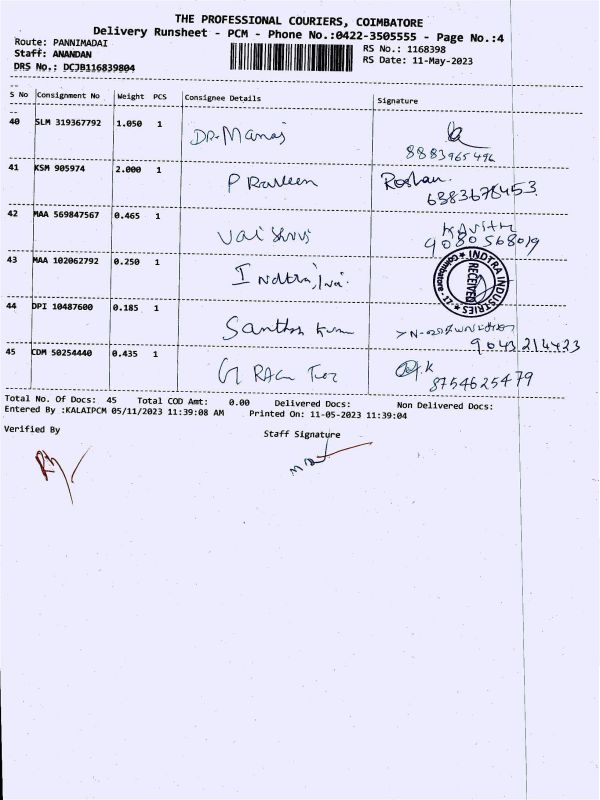 THE PROFESSIONAL COURIERS, COIMBATORE
Delivery Runsheet - PCM - Phone No.:0422-3505555 - Page No.:4
Route: PANNIMADAI
Staff: ANANDAN
DRS No.: DCJB116839804
RS No.: 1168398
RS Date: 11-May-2023
S No Consignment No Weight PCS Consignee Details Signature
40 SLM 319367792 1.050 1 DR. Manoj
8883965496
41 KSM 905974 2.000 1 P Raveen Roshan.
6383678453
42 MAA 569847567 0.465 1 Vaishnvi Kavith
9080568019
43 MAA 102062792 0.250 1 Indtra
INDTRA INDUSTRIES
RECEIVED
Coimbatore - 17
44 DPI 10487600 0.185 1 Santhosh Kumar
9043214423
45 CDM 50254440 0.435 1 G
8754625479
Total No. Of Docs: 45 Total COD Amt: 0.00 Delivered Docs: Non Delivered Docs:
Entered By :KALAIPCM 05/11/2023 11:39:08 AM Printed On: 11-05-2023 11:39:04
Verified By Staff Signature